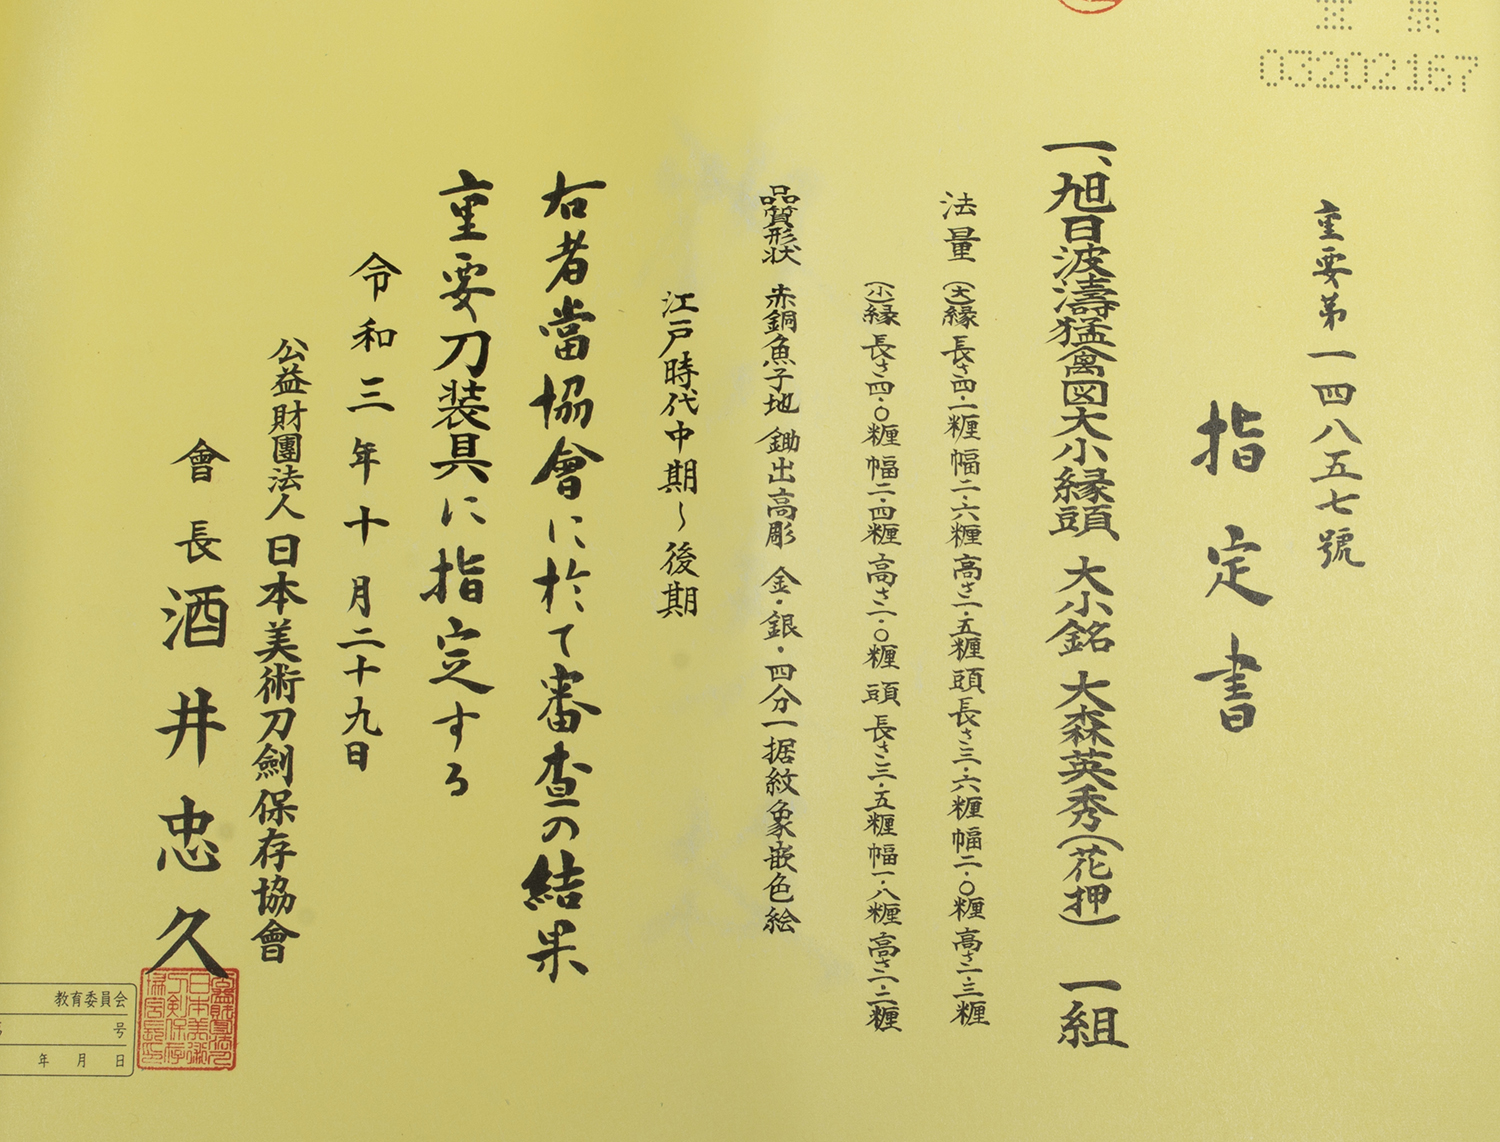 03202167
重要第一四八五七號
指定書
一、旭日波濤猛禽図大小縁頭 大小銘 大森英秀(花押) 一組
法量 (大)縁 長さ四・一糎 幅二・六糎 高さ一・五糎 頭 長さ三・六糎 幅二・〇糎 高さ一・三糎
(小)縁 長さ四・〇糎 幅二・四糎 高さ一・〇糎 頭 長さ三・五糎 幅一・八糎 高さ一・二糎
品質形状 赤銅魚子地 鋤出高彫 金・銀・四分一据紋象嵌色絵
江戸時代中期〜後期
右者當協會に於て審査の結果
重要刀装具に指定する
令和三年十月二十九日
公益財團法人日本美術刀劍保存協會
會長 酒井忠久
教育委員会
号
年 月 日